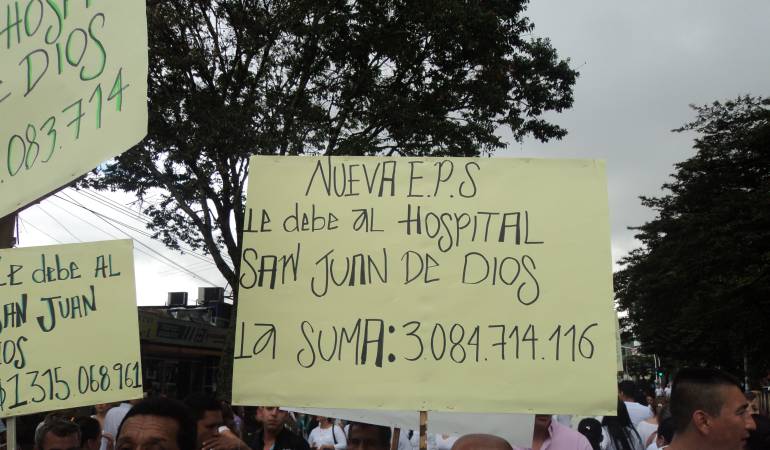 HOSPI
DE DIOS
.083.714
Le debe AL
SAN JUAN
IOS
$1.315.068.961
NUEVA E.P.S
Le debe AL HOSPITAL
SAN JUAN DE DIOS
La SUMA: 3.084.714.116